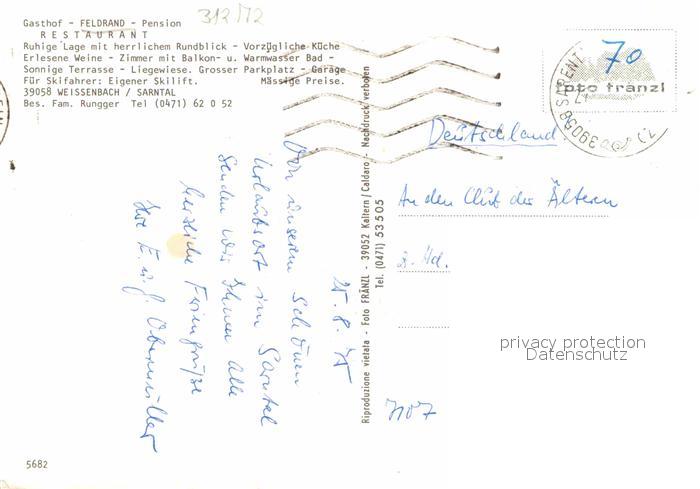 312/72
Gasthof - FELDRAND - Pension
RESTAURANT
Ruhige Lage mit herrlichem Rundblick - Vorzügliche Küche
Erlesene Weine - Zimmer mit Balkon- u. Warmwasser Bad -
Sonnige Terrasse - Liegewiese. Grosser Parkplatz - Garage
Für Skifahrer: Eigener Skilift. Mässige Preise.
39058 WEISSENBACH / SARNTAL
Bes. Fam. Rungger Tel (0471) 62 0 52
25.8.75
Von unserem schönen
Urlaubsort im Sarntal
senden wir Ihnen alle
herzliche Feriengrüße
Ihre E. u. J. Obermüller
Riproduzione vietata - Foto FRÄNZL - 39052 Kaltern / Caldaro - Nachdruck verboten
Tel. (0471) 53 5 05
70
foto fränzl
39058
Deutschland
An den Club der Älteren
z. Hd.
privacy protection
Datenschutz
5682